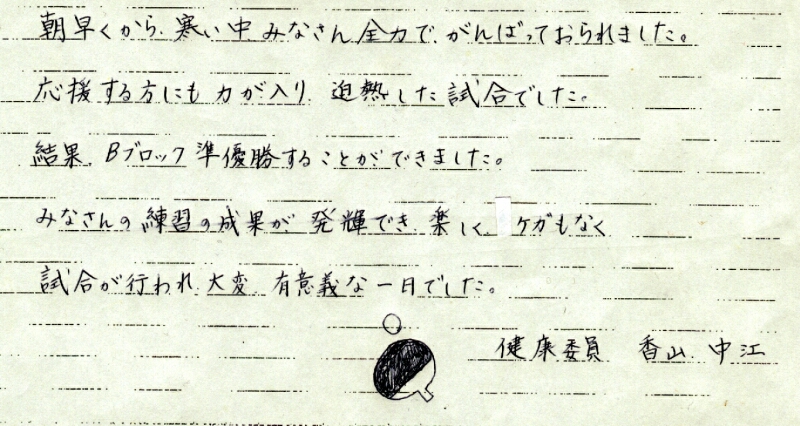 朝早くから、寒い中 みなさん 全力で、がんばっておられました。
応援する方にも 力が入り、迫熱した試合でした。
結果、Bブロック 準優勝することができました。
みなさんの練習の成果が 発揮でき、楽しく ケガもなく
試合が行われ、大変、有意義な一日でした。
健康委員 香山、中江